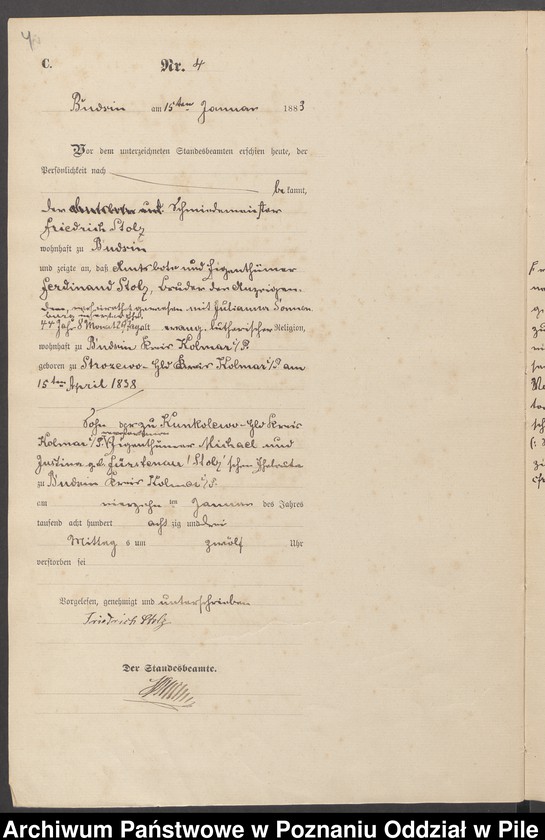 4
C.
Nr. 4
Budzin am 15ten Januar 1883
Vor dem unterzeichneten Standesbeamten erschien heute, der
Persönlichkeit nach
bekannt,
der Amtsbote und Schmiedemeister
Friedrich Stolz
wohnhaft zu Budzin
und zeigte an, daß Amtsbote und Eigenthümer
Ferdinand Stolz, Bruder des Anzeigen-
den, verheirathet gewesen mit Julianna
44 Jahr 8 Monat 29 Tage alt evang. lutherischer Religion,
wohnhaft zu Budzin Kreis Kolmar i/P.
geboren zu Strozewo-Hld Kreis Kolmar i/P. am
15ten April 1838
Sohn der zu Hld Kreis
Kolmar i/P. verstorbenen Eigenthümer Michael und
Justine geb. Stolz'schen Eheleute
zu Budzin Kreis Kolmar i/P.
am vierzehnten Januar des Jahres
tausend acht hundert achtzig und drei
Mittags um zwölf Uhr
verstorben sei
Vorgelesen, genehmigt und unterschrieben
Friedrich Stolz
Der Standesbeamte.
Archiwum Państwowe w Poznaniu Oddział w Pile